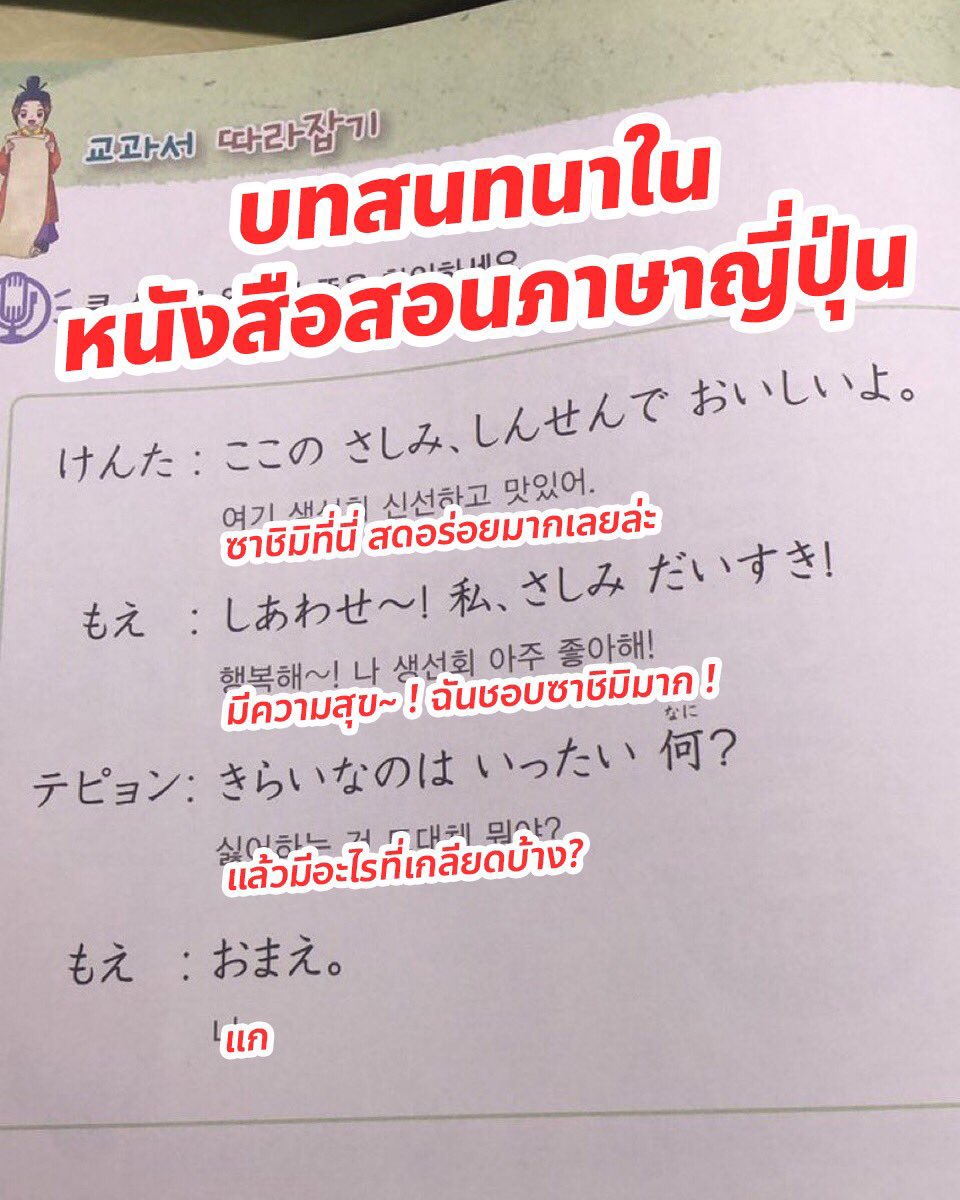 교과서 따라잡기
บทสนทนาใน
หนังสือสอนภาษาญี่ปุ่น
けんた : ここの さしみ、しんせんで おいしいよ。
여기 생선회 신선하고 맛있어.
ซาชิมิที่นี่ สดอร่อยมากเลยล่ะ
もえ : しあわせ～! 私、さしみ だいすき!
행복해～! 나 생선회 아주 좋아해!
มีความสุข~ ! ฉันชอบซาชิมิมาก !
なに
テピョン: きらいなのは いったい 何?
싫어하는 건 도대체 뭐야?
แล้วมีอะไรที่เกลียดบ้าง?
もえ : おまえ。
แก